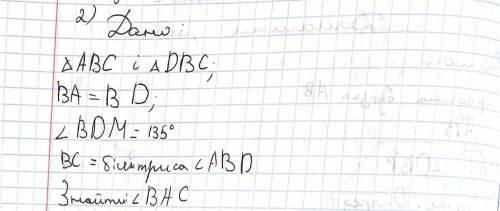 2)
Дано:
△ABC і △DBC;
BA = BD;
∠BDM = 135°
BC = бісектриса ∠ABD
Знайти ∠BAC